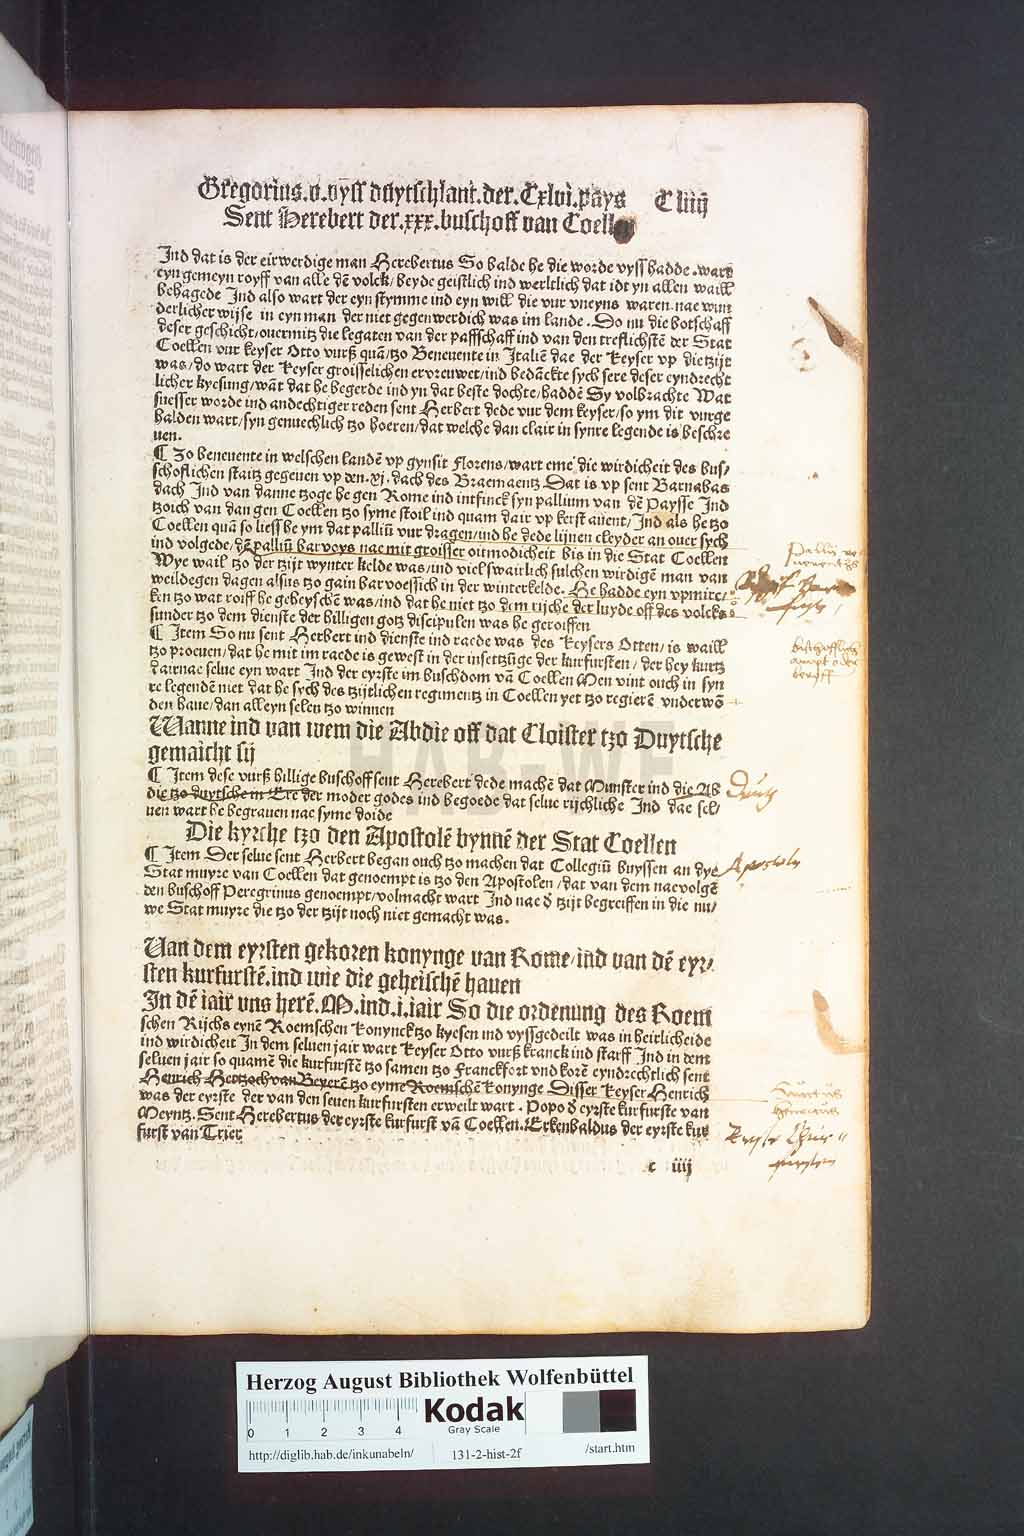 Gregorius.v.vyss duytschlant.der.Cxlvi.pays C liiij
Sent Herebert der.xxx.buschoff van Coellen
Ind dat is der eirwerdige man Herebertus So balde he die worde vyss hadde.wart
eyn gemeyn royff van alle dē volck/beyde geistlich ind werltlich dat idt yn allen waill
behagede Ind also wart der eyn stymme ind eyn will die vur vneyns waren.nae wun
derlicher wijse in eyn man der niet gegenwerdich was im lande. Do nu die botschaff
deser geschicht/ouermitz die legaten van der paffschaff ind van den treflichstē der Stat
Coellen vur keyser Otto vurß quā/tzo Beneuente in Italiē dae der keyser vp die tzijt
was/do wart der keyser groisselichen ervreuwet/ind bedāckte sych sere deser eyndrecht
licher kyesung/wāt dat he begerde ind yn dat beste dochte/haddē Sy volbrachte Wat
suesser worde ind andechtiger reden sent Herbert dede vur dem keyser/so ym dit vurge
halden wart/syn genuechlich tzo hoeren/dat welche dan clair in synre legende is beschre
uen.
¶ Zo beneuente in welschen landē vp gynsit Florens/wart eme die wirdicheit des bus/
schofflichen staitz gegeuen vp den.xj.dach des Braemaentz Dat is vp sent Barnabas
dach Ind van danne tzoge he gen Rome ind intfinck syn pallium van dē Paysse Ind
tzoich van dan gen Coellen tzo syme stoil ind quam dair vp kerst auent/Ind als he tzo
Coellen quā so liess he ym dat palliū vur dragen/ind he dede lijnen cleyder an ouer sych
ind volgede/dē palliū barvoys nae mit groisser oitmodicheit bis in die Stat Coellen
Wye wail tzo der tzijt wynter kelde was/ind viel swairlich sulchen wirdigē man van
weildegen dagen alsus tzo gain barvoessich in der winterkelde. He hadde eyn vpmirc/
ken tzo wat roiff he geheyschē was/ind dat he niet tzo dem rijche der luyde off des volcks
sunder tzo dem dienste der hilligen gotz discipulen was he geroiffen
¶ Item So nu sent Herbert ind dienste ind raede was des keysers Otten/is waill
tzo proeuen/dat he mit im raede is gewest in der insetzūge der kurfursten/der hey kurtz
dairnae selue eyn wart Ind der eyrste im buschdom vā Coellen Men vint ouch in syn
re legendē niet dat he sych des tzijtlichen regimentz in Coellen yet tzo regierē vnderwō
den haue/dan alleyn selen tzo winnen
Wanne ind van wem die Abdie off dat Cloister tzo Duytsche
gemaicht sij
¶ Item dese vurß hillige buschoff sent Herebert dede machē dat Munster ind die Ab
die tzo duytsche in Ere der moder godes ind begoede dat selue rijchliche Ind dae sel/
uen wart he begrauen nae syme doide
Die kyrche tzo den Apostolē bynnē der Stat Coellen
¶ Item Der selue sent Herbert began ouch tzo machen dat Collegiū buyssen an dye
Stat muyre van Coellen dat genoempt is tzo den Apostolen/dat van dem naevolgē
den buschoff Peregrinus genoempt/volmacht wart Ind nae d' tzijt begreiffen in die nu/
we Stat muyre die tzo der tzijt noch niet gemacht was.
Van dem eyrsten gekoren konynge van Rome/ind van dē eyr/
sten kurfurstē.ind wie die geheischē hauen
In dē iair vns herē.M.ind.i.iair So die ordenung des Roem
schen Rijchs eynē Roemschen konynck tzo kyesen ind vyssgedeilt was in heirlicheide
ind wirdicheit In dem seluen jair wart keyser Otto vurß kranck ind starff Ind in dem
seluen jair so quamē die kurfurstē tzo samen tzo Franckfort vnd korē eyndrechtlich sent
Henrich Hertzoch van Beyerē tzo eyme Roemschē konynge Disser keyser Henrich
was der eyrste der van den seuen kurfursten erweilt wart. Popo d' eyrste kurfurste van
Meyntz. Sent Herebertus der eyrste kurfurst vā Coellen. Erkenbaldus der eyrste kur
furst van Trier
c iiij
Deutz
Apostoln
HAB-WF
Herzog August Bibliothek Wolfenbüttel
0 1 2 3 4
Kodak
Gray Scale
http://diglib.hab.de/inkunabeln/ 131-2-hist-2f /start.htm